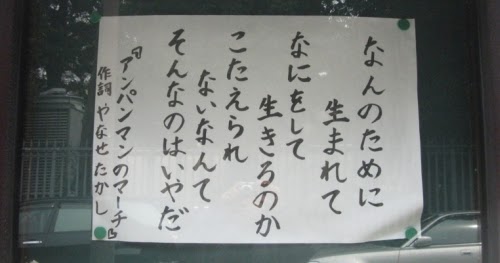 なんのために
生まれて
なにをして
生きるのか
こたえられ
ないなんて
そんなのはいやだ
「アンパンマンのマーチ」
作詞 やなせたかし